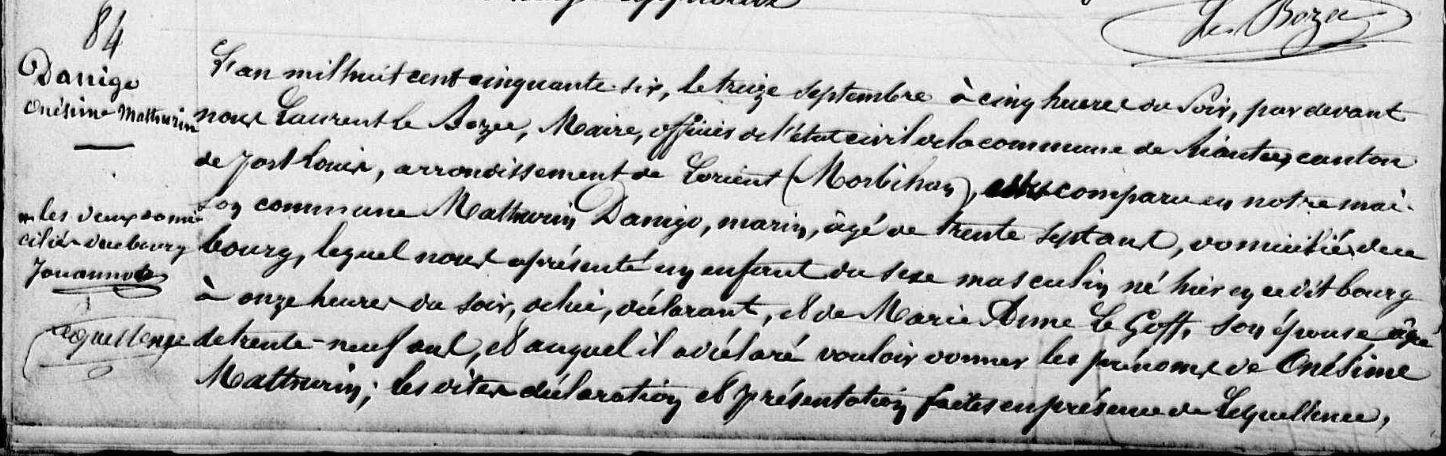 Le Bozec
84
Danigo
Onésime Mathurin
les deux domi
ciliés du bourg
Jouanno
Lequellenec
L'an mil huit cent cinquante six, le treize septembre à cinq heures du soir, par devant
nous Laurent Le Bozec, Maire, officier de l'état civil de la commune de Riantec, canton
de Port Louis, arrondissement de Lorient (Morbihan), est comparu en notre mai-
son commune Mathurin Danigo, marin, âgé de trente sept ans, domicilié de ce
bourg, lequel nous a présenté un enfant du sexe masculin né hier en ce dit bourg
à onze heures du soir, de lui, déclarant, et de Marie Anne Le Goff, son épouse âgée
de trente-neuf ans, et auquel il a déclaré vouloir donner les prénoms de Onésime
Mathurin; les dites déclaration et présentation faites en présence de Lequellenec,